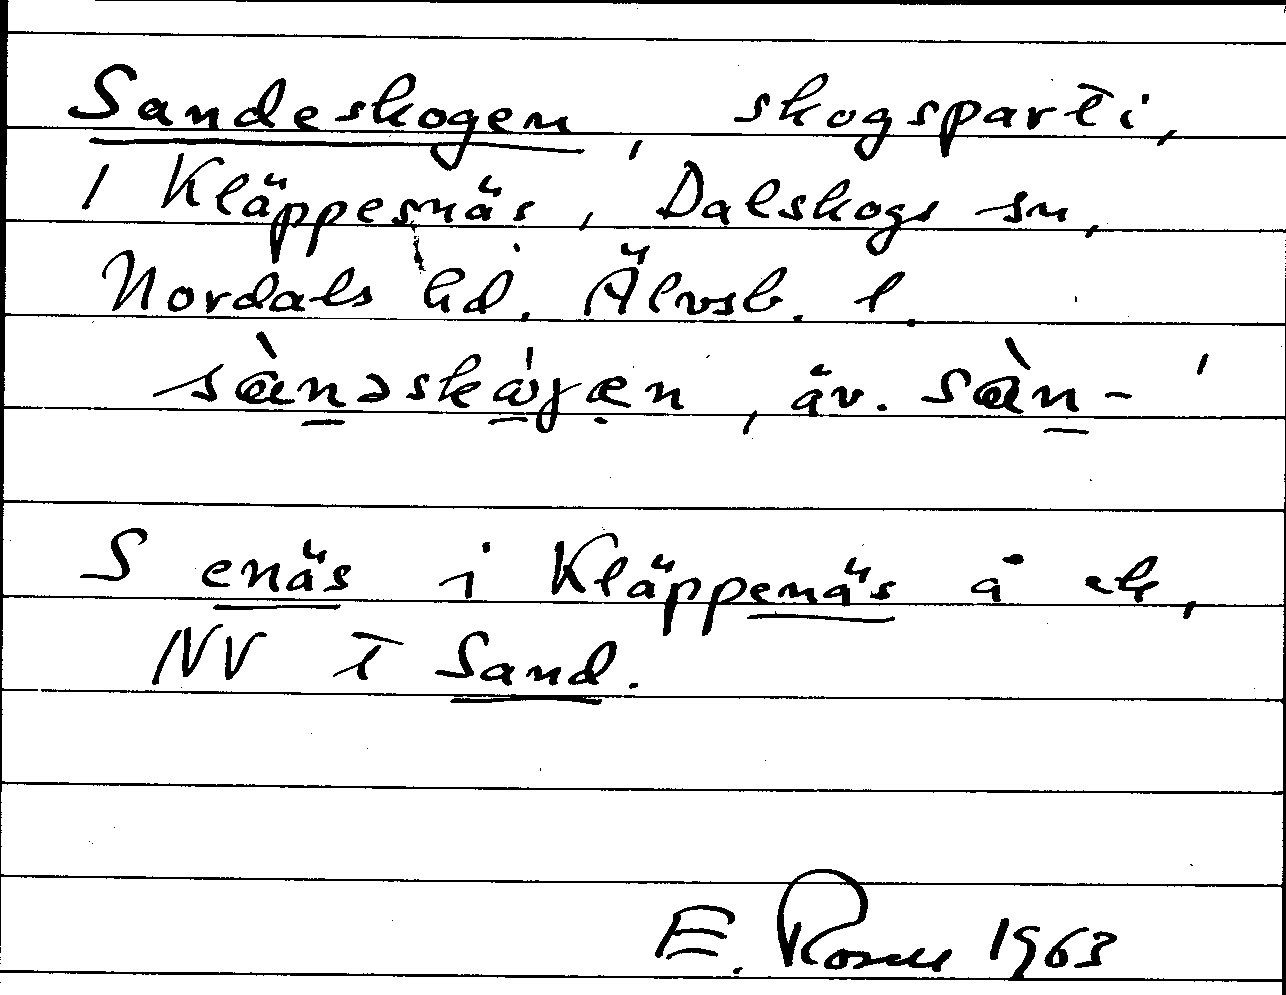 Sandeskogen, skogsparti,
1 Kläppesnäs, Dalskogs sn,
Nordals hd. Älvsb. l.
sàndəskå̀gæn, äv. sàn-
S enäs i Kläppenäs å ek,
NV T Sand.
E. Rosell 1963